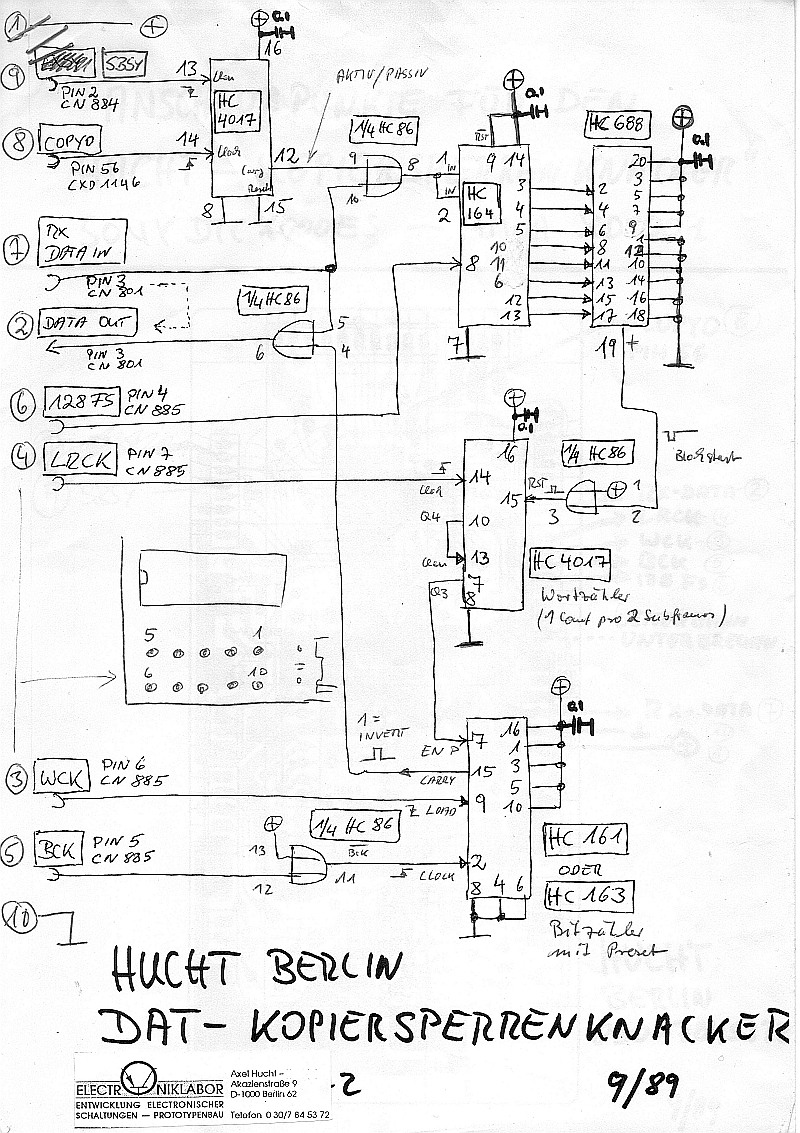 ① +
⑨ SBSY
PIN 2
CN 884
13
Clear
HC
4017
0.1
16
AKTIV/PASSIV
⑧ COPYD
PIN 56
CXD 1146
14
Clock
12
Carry
Reset
8
15
1/4 HC86
9
8
10
1 IN
IN
2
RST
9 14
0.1
HC
164
3
4
5
10
11
6
12
13
8
7
HC 688
2
4
6
8
11
13
15
17
20
3
5
7
9
1
12
10
14
16
18
0.1
19
⑦ RX
DATA IN
PIN 3
CN 801
1/4 HC86
② DATA OUT
PIN 3
CN 801
6
5
4
⑥ 128 FS
PIN 4
CN 885
④ LRCK
PIN 7
CN 885
0.1
16
14
Clock
15
RST
3
1/4 HC86
+ 1
2
Blockstart
Q4
10
13
7
Q3
8
HC 4017
Wortzähler
(1 Count pro 2 Subframes)
5 1
6 10
1 =
INVERT
0.1
EN P
7
CARRY
15
LOAD
9
16
1
3
5
10
③ WCK
PIN 6
CN 885
⑤ BCK
PIN 5
CN 885
13
12
1/4 HC 86
BCK
11
CLOCK
2
8 4 6
HC 161
ODER
HC 163
Bitzähler
mit Preset
⑩
HUCHT BERLIN
DAT - KOPIERSPERRENKNACKER
-2
9/89
ELECTRONIKLABOR
ENTWICKLUNG ELECTRONISCHER
SCHALTUNGEN — PROTOTYPENBAU
Axel Hucht -
Akazienstraße 9
D-1000 Berlin 62
Telefon 0 30/7 84 53 72